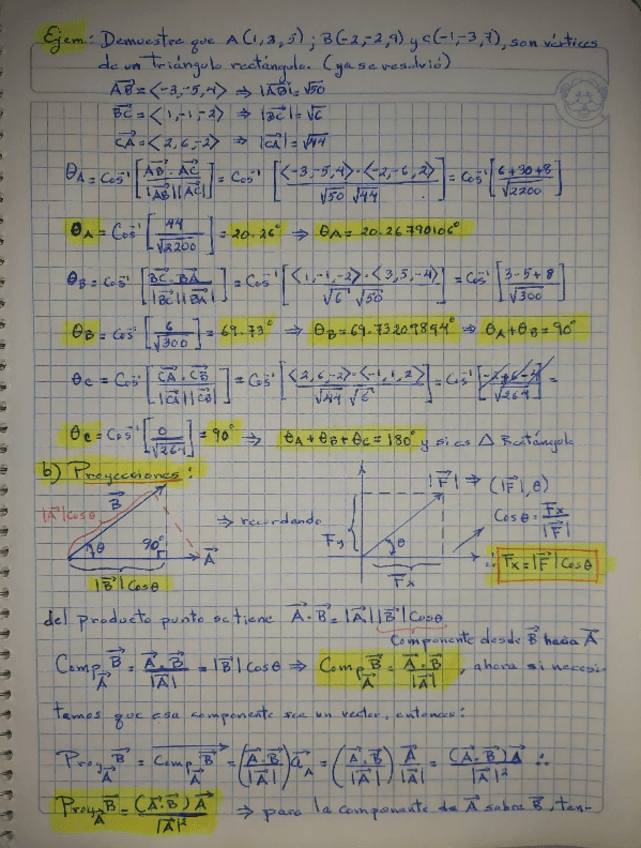 Ejem.: Demuestre que A(1,3,5); B(-2,-2,9) y C(-1,-3,7), son vértices
de un triángulo rectángulo. (ya se resolvió)
AB⃗ = <-3,-5,4> ⇒ |AB⃗| = √50
BC⃗ = <1,-1,-2> ⇒ |BC⃗| = √6
CA⃗ = <2,6,-2> ⇒ |CA⃗| = √44
θA = Cos⁻¹ [AB⃗ · AC⃗ / |AB⃗||AC⃗|] = Cos⁻¹ [<-3,-5,4> · <-2,-6,2> / √50 √44] = Cos⁻¹ [6+30+8 / √2200]
θA = Cos⁻¹ [44 / √2200] = 20.26° ⇒ θA = 20.26790106°
θB = Cos⁻¹ [BC⃗ · BA⃗ / |BC⃗||BA⃗|] = Cos⁻¹ [<1,-1,-2> · <3,5,-4> / √6 √50] = Cos⁻¹ [3-5+8 / √300]
θB = Cos⁻¹ [6 / √300] = 69.73° ⇒ θB = 69.73209894° ⇒ θA + θB = 90°
θC = Cos⁻¹ [CA⃗ · CB⃗ / |CA⃗||CB⃗|] = Cos⁻¹ [<2,6,-2> · <-1,1,2> / √44 √6] = Cos⁻¹ [-2+6-4 / √264] =
θC = Cos⁻¹ [0 / √264] = 90° ⇒ θA + θB + θC = 180° y si es △ Rectángulo
b) Proyecciones:
|A⃗|Cosθ
B⃗
θ
90°
A⃗
|B⃗|Cosθ
⇒ recordando
|F⃗| ⇒ (|F⃗|, θ)
Fy
θ
Fx
Cosθ = Fx / |F⃗|
∴ Fx = |F⃗| Cosθ
del producto punto se tiene A⃗ · B⃗ = |A⃗||B⃗|Cosθ
Componente desde B⃗ hacia A⃗
Comp_A⃗ B⃗ = A⃗ · B⃗ / |A⃗| = |B⃗| Cosθ ⇒ Comp_A⃗ B⃗ = A⃗ · B⃗ / |A⃗|, ahora si necesi-
tamos que esa componente sea un vector, entonces:
Proy_A⃗ B⃗ = Comp_A⃗ B⃗ = (A⃗ · B⃗ / |A⃗|) a⃗_A = (A⃗ · B⃗ / |A⃗|) A⃗ / |A⃗| = (A⃗ · B⃗) A⃗ / |A⃗|² ∴
Proy_A⃗ B⃗ = (A⃗ · B⃗) A⃗ / |A⃗|² ⇒ para la componente de A⃗ sobre B⃗, ten-